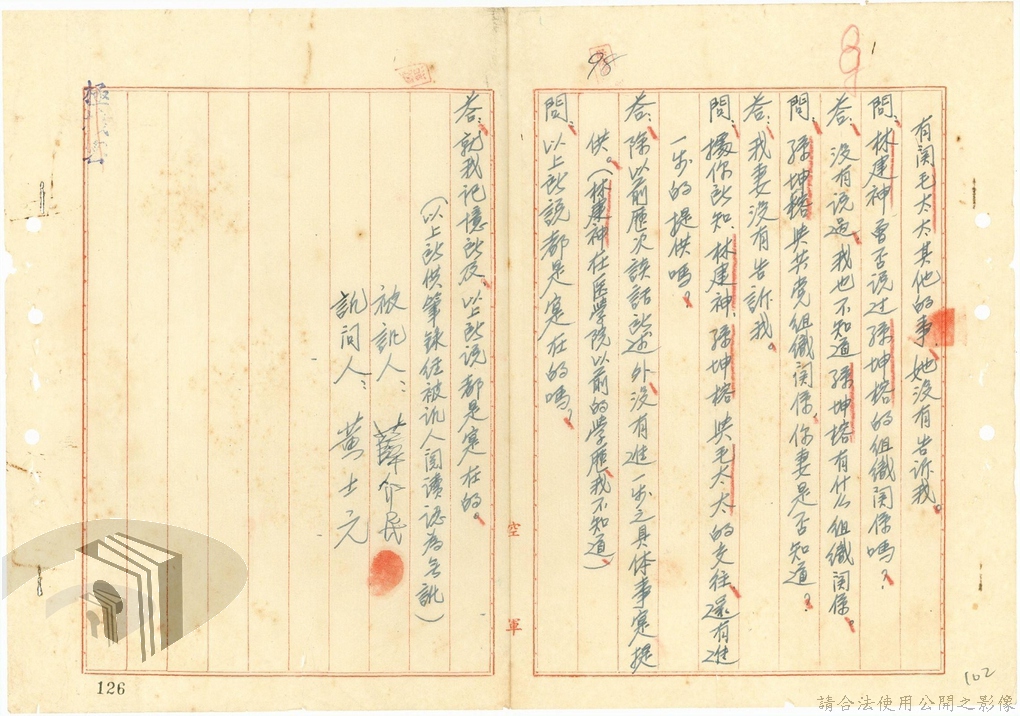 有関毛太太其他的事，她没有告訴我。
問：林建神曽否说过孫坤榕的組織関係嗎？
答：没有说过，我也不知道孫坤榕有什么組織関係。
問：孫坤榕與共党組織関係，你妻是否知道？
答：我妻没有告訴我。
問：據你所知，林建神、孫坤榕與毛太太的交往還有進
一步的提供嗎？
答：除以前歷次談話所述外，没有進一步之具体事实提
供。（林建神在医学院以前的学歷我不知道）
問：以上所説都是实在的嗎？
答：就我记憶所及，以上所说都是实在的。
（以上所供筆録経被訊人阅讀認為無訛）
被訊人：薛介民
訊问人：黄士元
極機密
空軍
98
8
126
102
請合法使用公開之影像